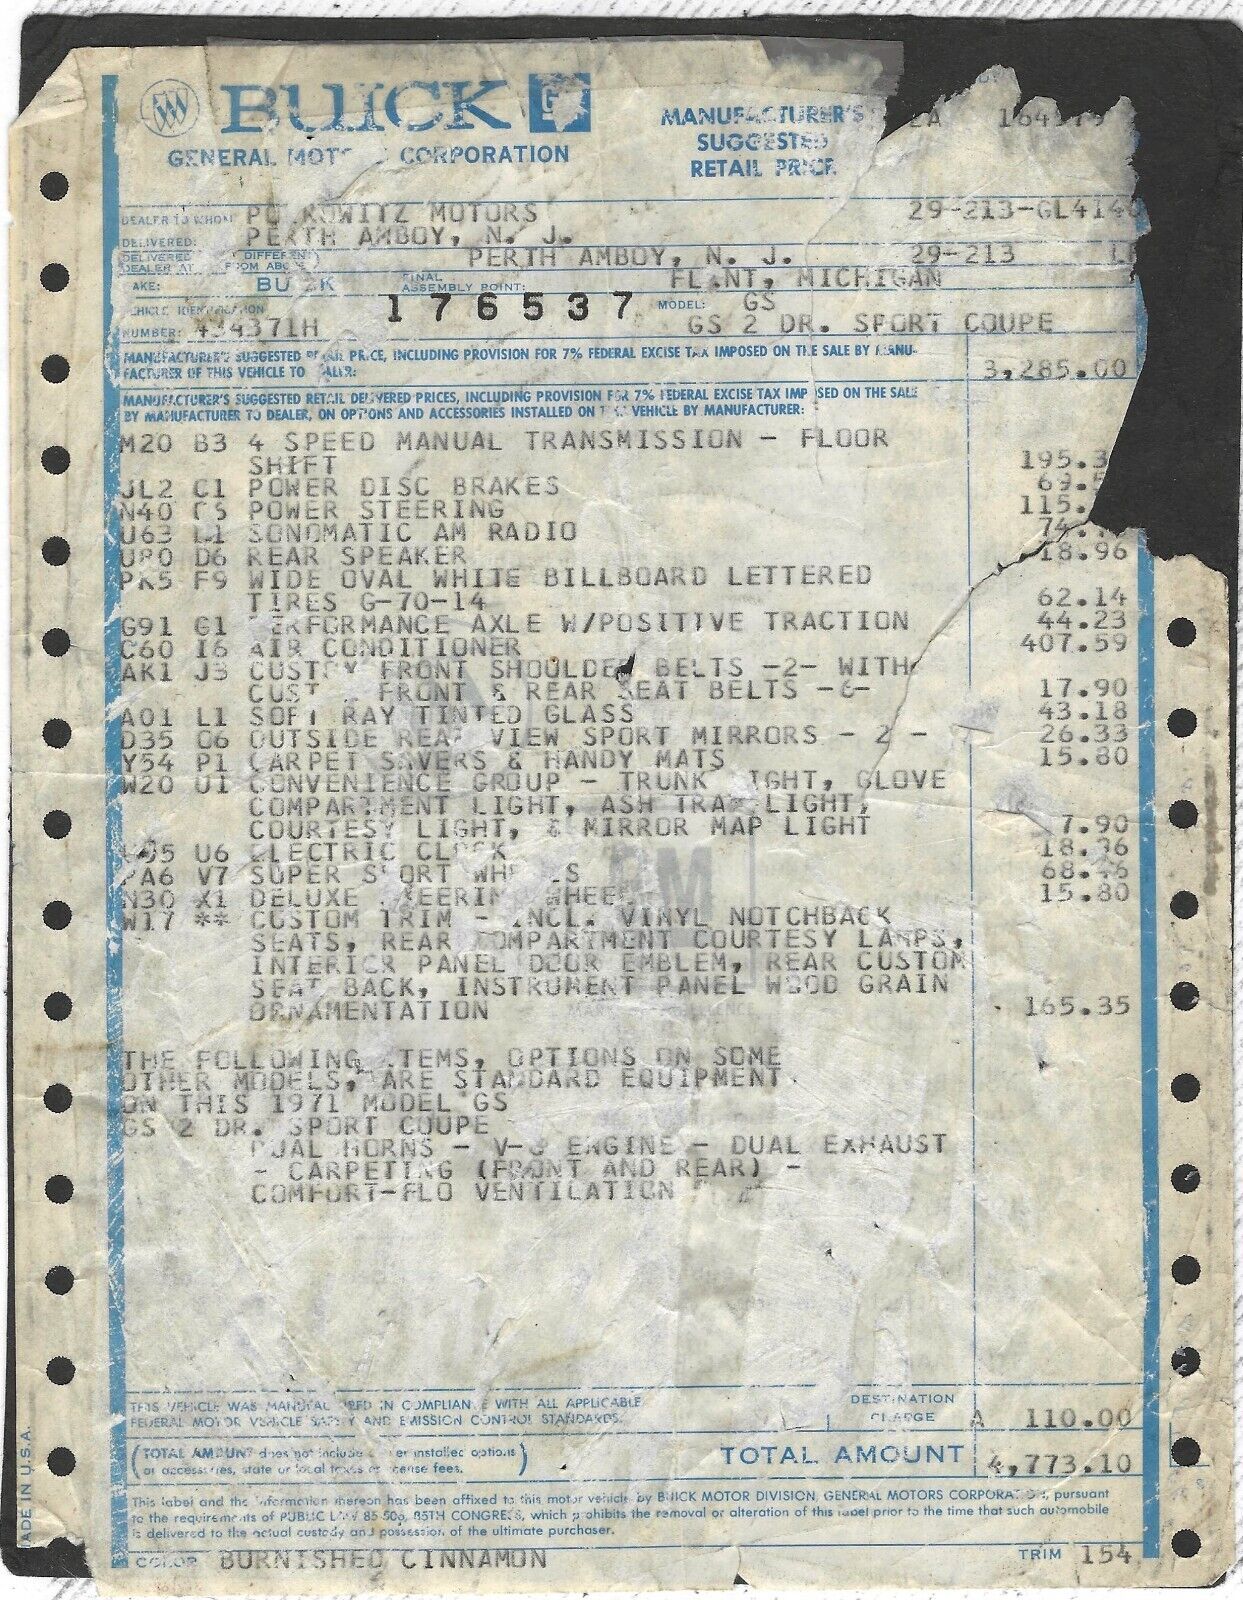 BUICK
GENERAL MOT CORPORATION
MANUFACTURER'S
SUGGESTED
RETAIL PRICE
DEALER TO WHOM
DELIVERED:
KOWITZ MOTORS
PERTH AMBOY, N. J.
29-213-GL414
DELIVERED
DEALER AT
(IF DIFFERENT
FROM ABOVE)
PERTH AMBOY, N. J.
29-213
MAKE:
BUICK
FINAL
ASSEMBLY POINT:
FLINT, MICHIGAN
VEHICLE IDENTIFICATION
NUMBER: 434371H
176537
MODEL: GS
GS 2 DR. SPORT COUPE
MANUFACTURER'S SUGGESTED RETAIL PRICE, INCLUDING PROVISION FOR 7% FEDERAL EXCISE TAX IMPOSED ON THE SALE BY MANU-
FACTURER OF THIS VEHICLE TO DEALER:
3,285.00
MANUFACTURER'S SUGGESTED RETAIL DELIVERED PRICES, INCLUDING PROVISION FOR 7% FEDERAL EXCISE TAX IMPOSED ON THE SALE
BY MANUFACTURER TO DEALER, ON OPTIONS AND ACCESSORIES INSTALLED ON THIS VEHICLE BY MANUFACTURER:
M20 B3 4 SPEED MANUAL TRANSMISSION - FLOOR
SHIFT 195.3
JL2 C1 POWER DISC BRAKES 69.
N40 C5 POWER STEERING 115.
U63 L1 SONOMATIC AM RADIO 74.
U80 D6 REAR SPEAKER 18.96
PK5 F9 WIDE OVAL WHITE BILLBOARD LETTERED
TIRES G-70-14 62.14
G91 G1 PERFORMANCE AXLE W/POSITIVE TRACTION 44.23
C60 I6 AIR CONDITIONER 407.59
AK1 J3 CUSTOM FRONT SHOULDER BELTS -2- WITH
CUSTOM FRONT & REAR SEAT BELTS -6- 17.90
A01 L1 SOFT RAY TINTED GLASS 43.18
D35 O6 OUTSIDE REAR VIEW SPORT MIRRORS - 2 - 26.33
Y54 P1 CARPET SAVERS & HANDY MATS 15.80
W20 U1 CONVENIENCE GROUP - TRUNK LIGHT, GLOVE
COMPARTMENT LIGHT, ASH TRAY LIGHT,
COURTESY LIGHT, & MIRROR MAP LIGHT 7.90
U35 U6 ELECTRIC CLOCK 18.96
PA6 V7 SUPER SPORT WHEELS 68.46
N30 X1 DELUXE STEERING WHEEL 15.80
W17 ** CUSTOM TRIM - INCL. VINYL NOTCHBACK
SEATS, REAR COMPARTMENT COURTESY LAMPS,
INTERIOR PANEL DOOR EMBLEM, REAR CUSTOM
SEAT BACK, INSTRUMENT PANEL WOOD GRAIN
ORNAMENTATION 165.35
THE FOLLOWING ITEMS, OPTIONS ON SOME
OTHER MODELS, ARE STANDARD EQUIPMENT
ON THIS 1971 MODEL GS
GS 2 DR. SPORT COUPE
DUAL HORNS - V-8 ENGINE - DUAL EXHAUST
- CARPETING (FRONT AND REAR) -
COMFORT-FLO VENTILATION
THIS VEHICLE WAS MANUFACTURED IN COMPLIANCE WITH ALL APPLICABLE
FEDERAL MOTOR VEHICLE SAFETY AND EMISSION CONTROL STANDARDS.
DESTINATION
CHARGE A 110.00
(TOTAL AMOUNT does not include dealer installed options
or accessories, state or local taxes or license fees.)
TOTAL AMOUNT 4,773.10
This label and the information thereon has been affixed to this motor vehicle by BUICK MOTOR DIVISION, GENERAL MOTORS CORPORATION, pursuant
to the requirements of PUBLIC LAW 85-506, 85TH CONGRESS, which prohibits the removal or alteration of this label prior to the time that such automobile
is delivered to the actual custody and possession of the ultimate purchaser.
COLOR BURNISHED CINNAMON
TRIM 154
MADE IN U.S.A.